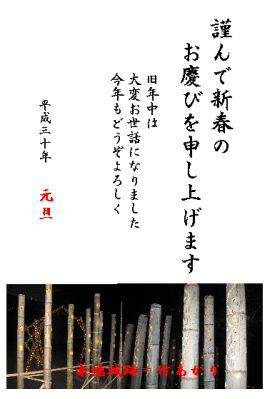 謹んで新春の
お慶びを申し上げます
旧年中は
大変お世話になりました
今年もどうぞよろしく
平成三十年
元旦
竹あかり